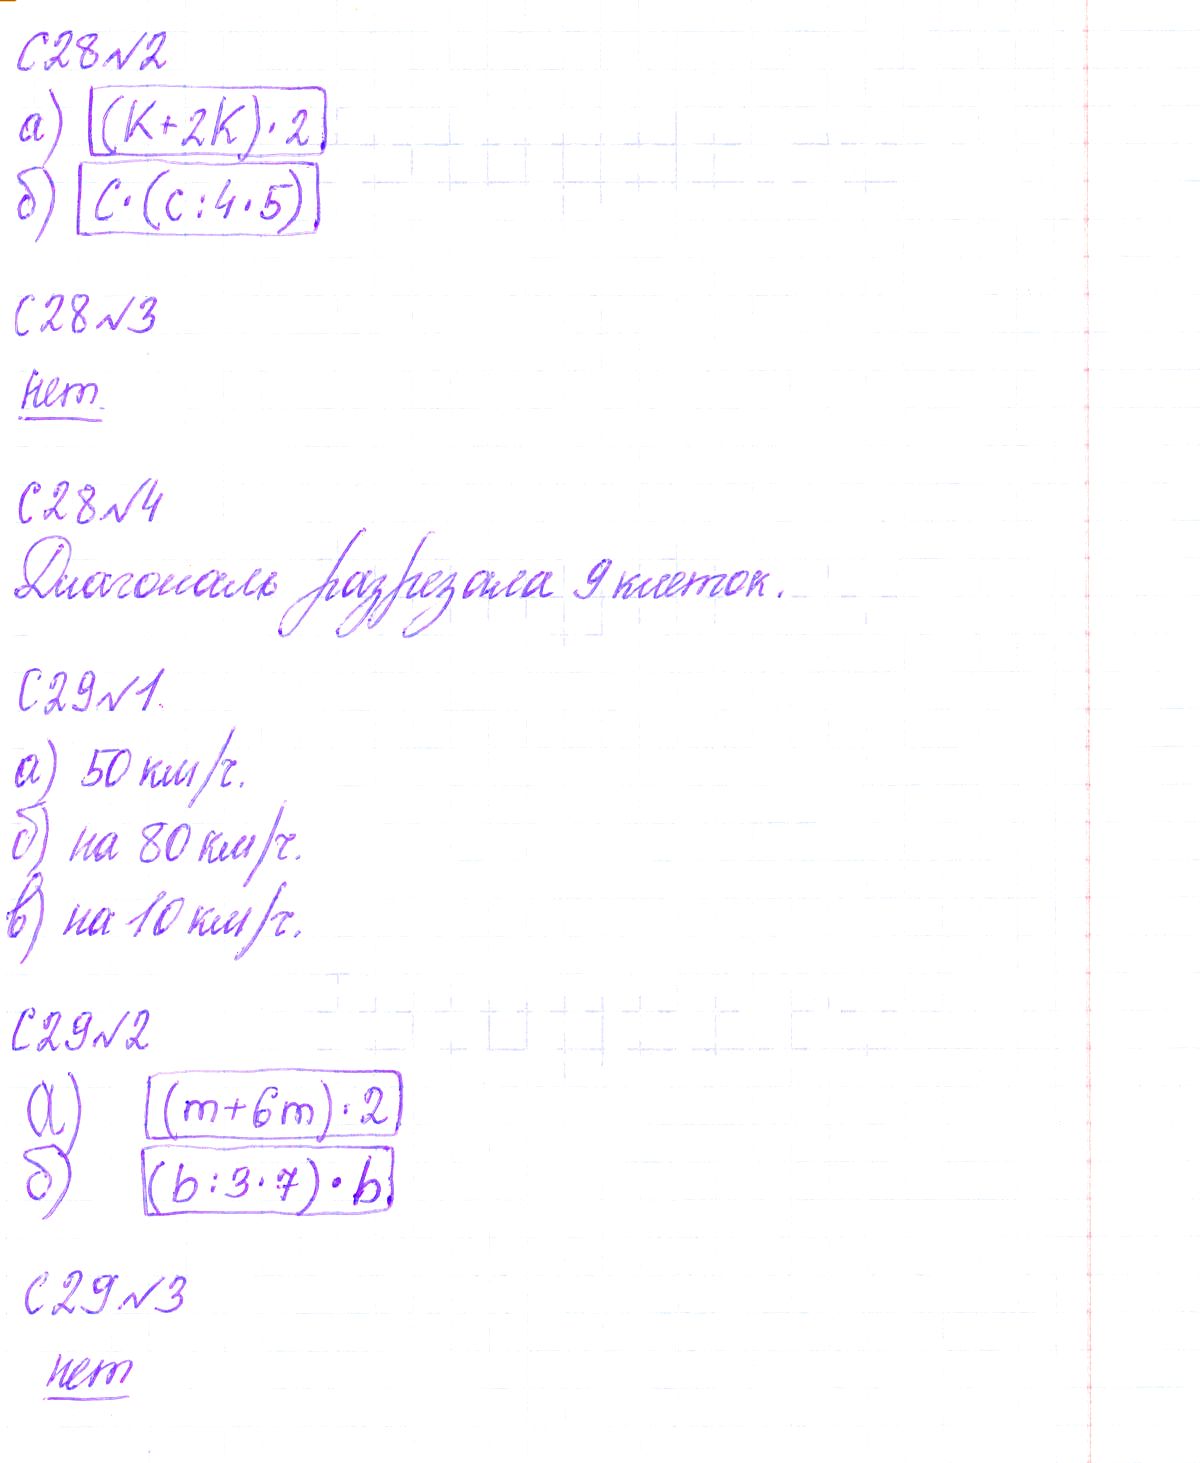 С28№2
а) (К+2К)·2
б) с·(с:4·5)
С28№3
нет.
С28№4
Диагональ разрезала 9 клеток.
С29№1.
а) 50 км/ч.
б) на 80 км/ч.
в) на 10 км/ч.
С29№2
а) (m+6m)·2
б) (b:3·7)·b
С29№3
нет